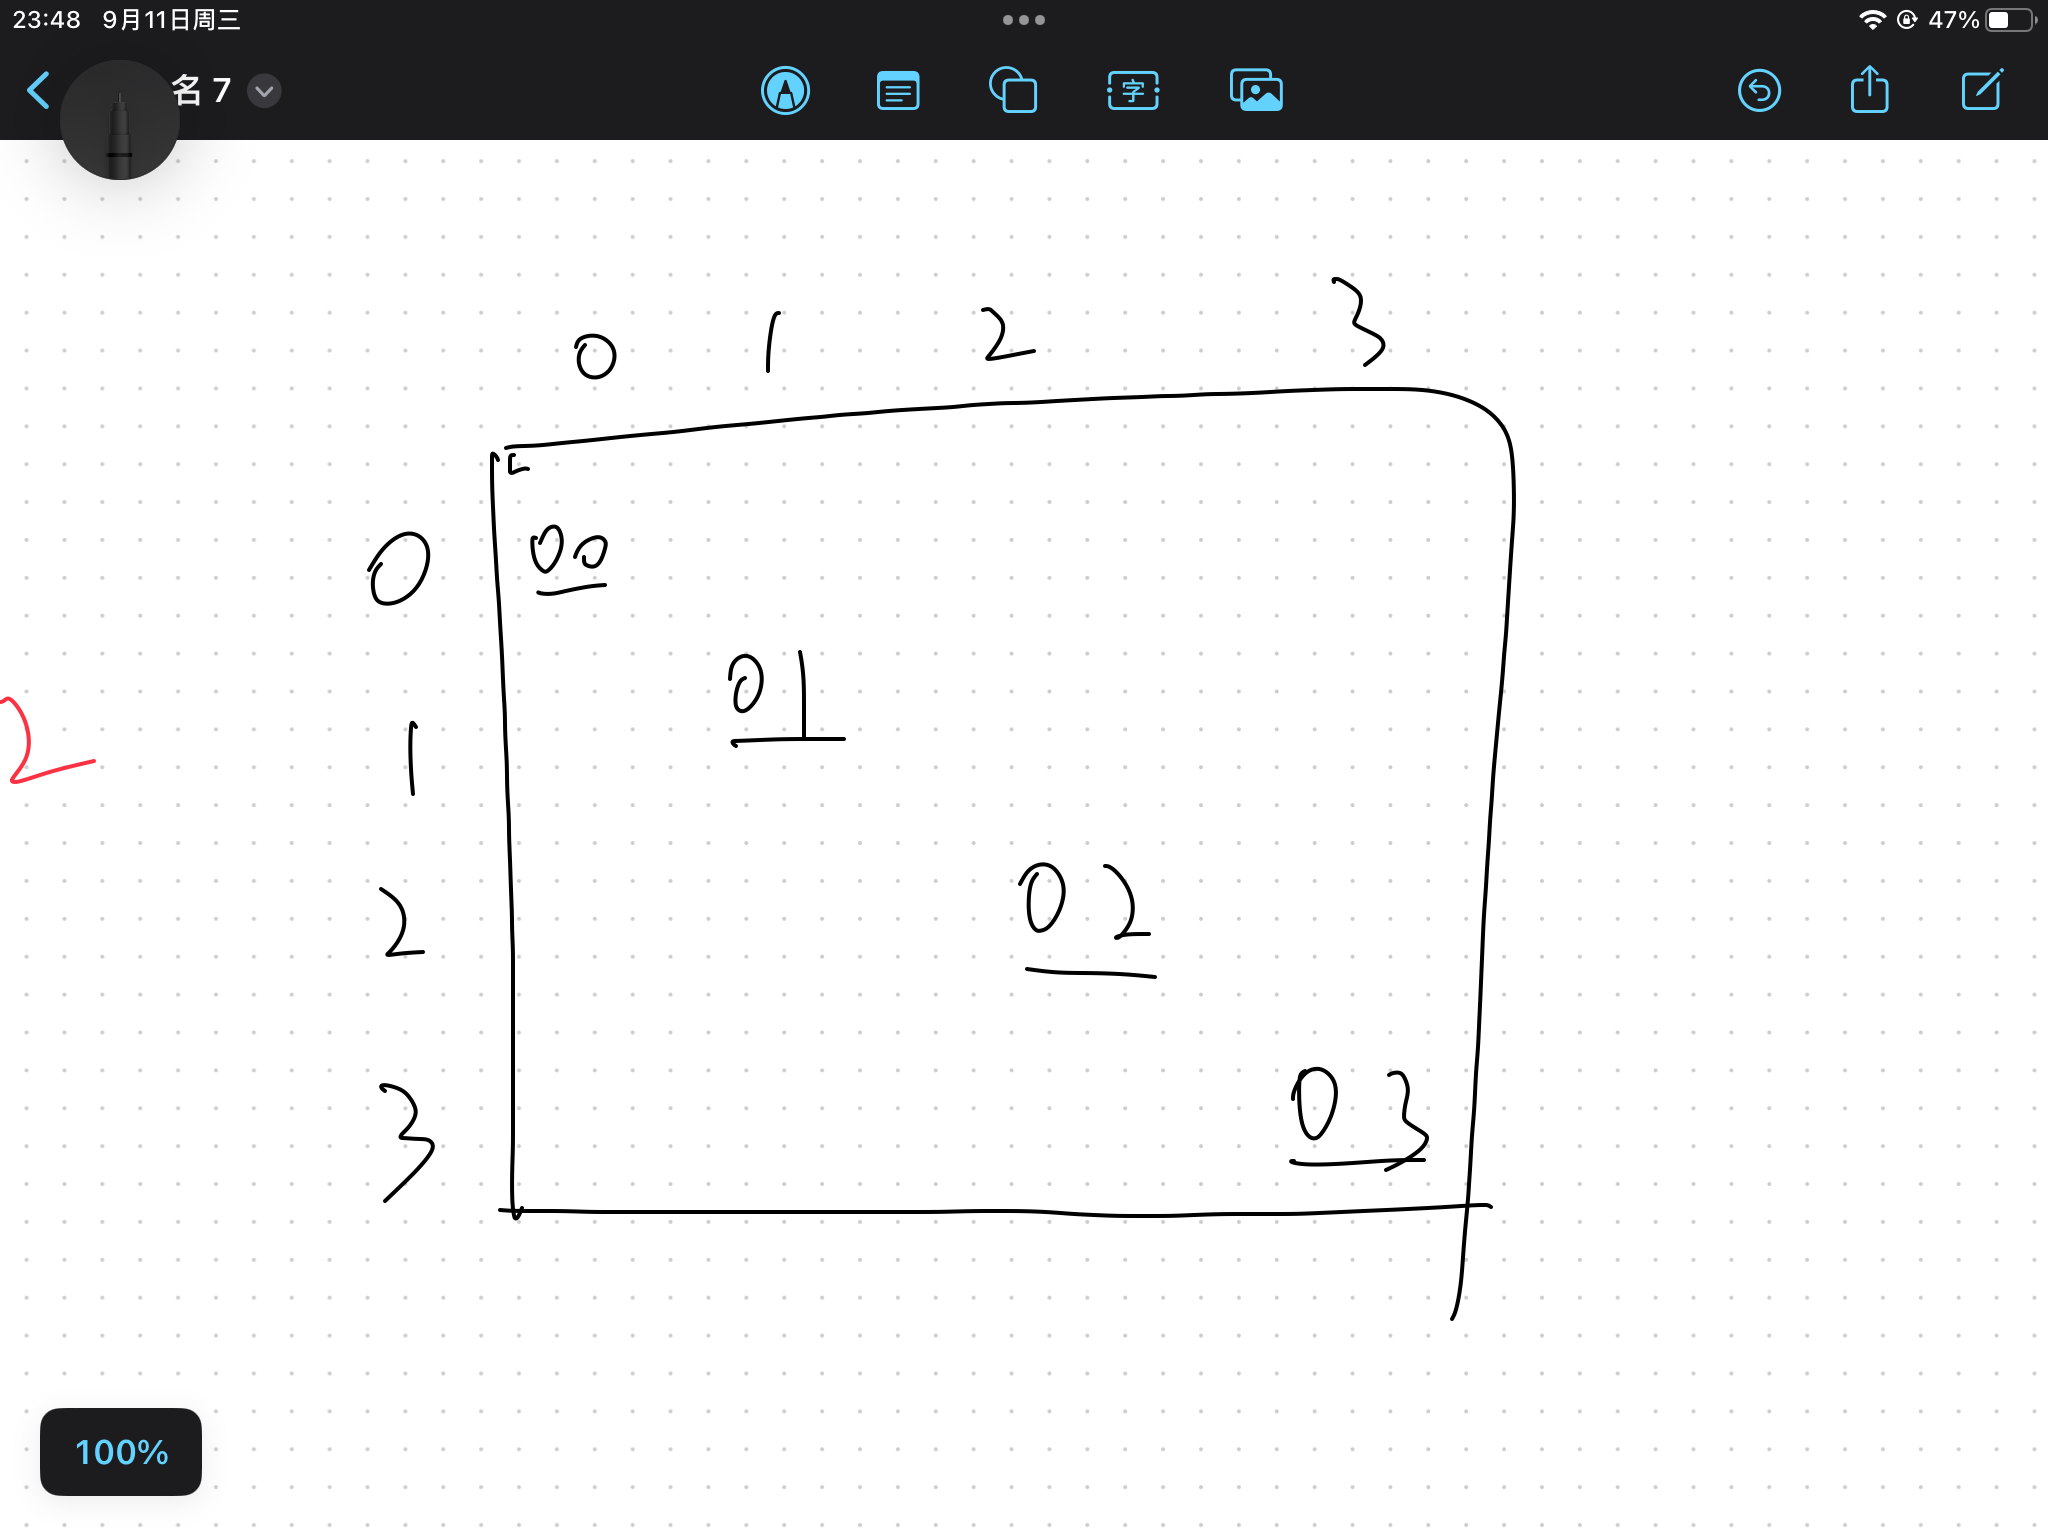 23:48 9月11日周三
47%
名 7
字
0 1 2 3
0 00
1 01
2
2 02
3 03
100%